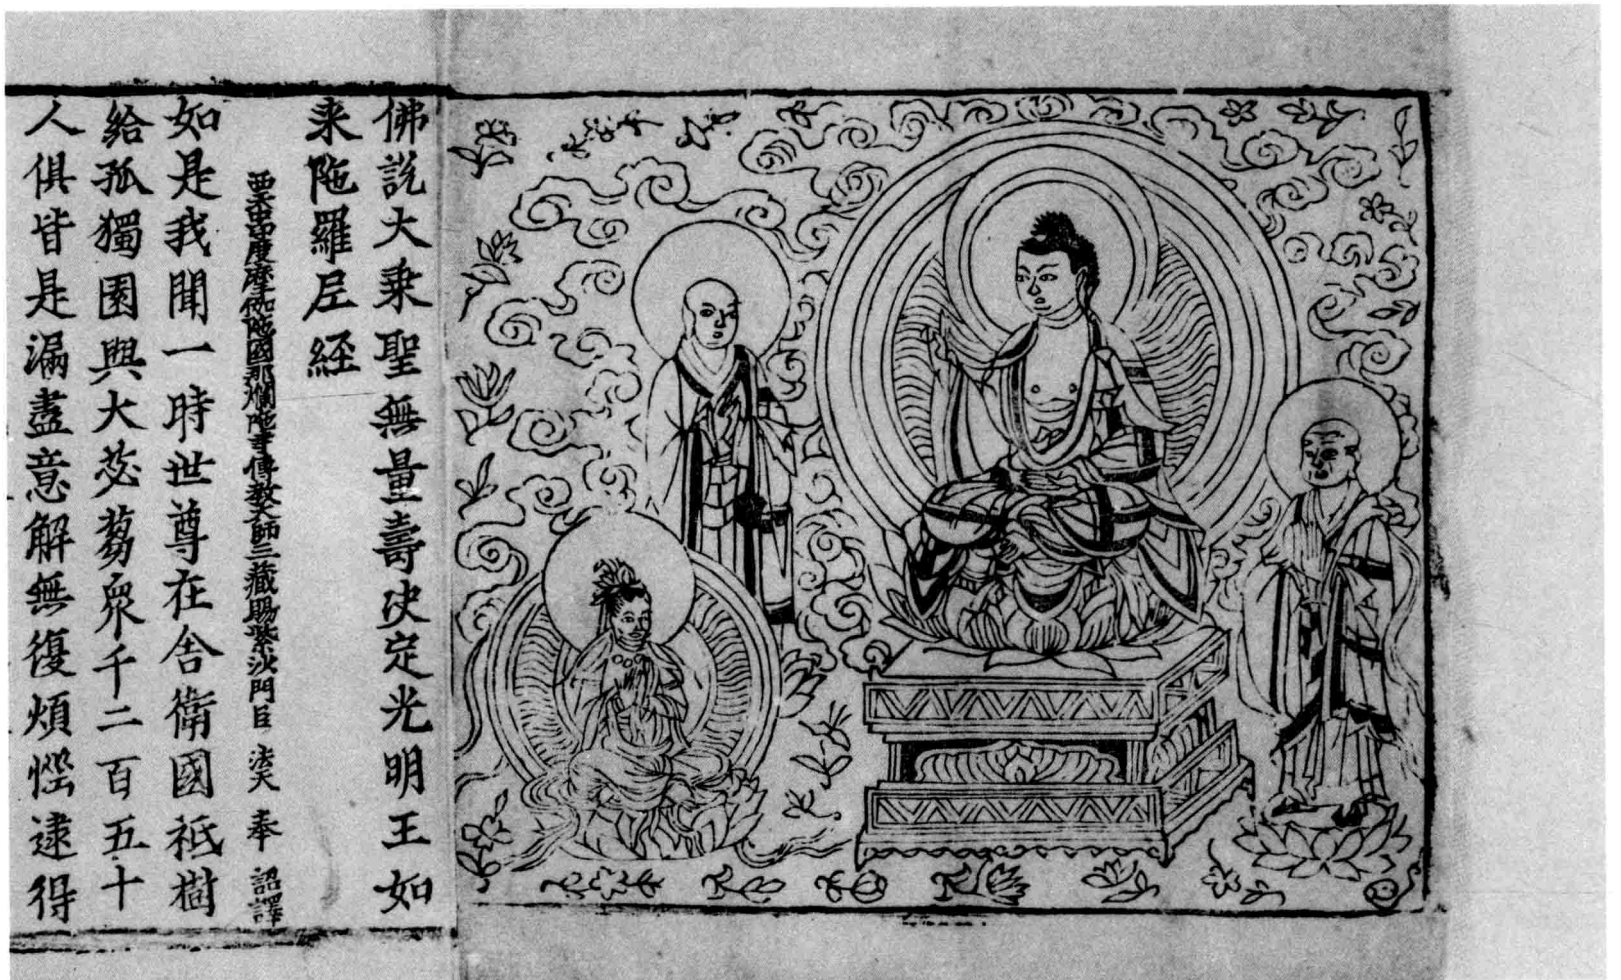 佛說大乘聖無量壽决定光明王如
来陁羅尼経
西天中印度摩伽陁國那爛陁寺傳教大師三藏賜紫沙門臣 法天 奉 詔譯
如是我聞一時世尊在舍衛國祇樹
給孤獨園與大苾蒭衆千二百五十
人俱皆是漏盡意解無復煩惱逮得